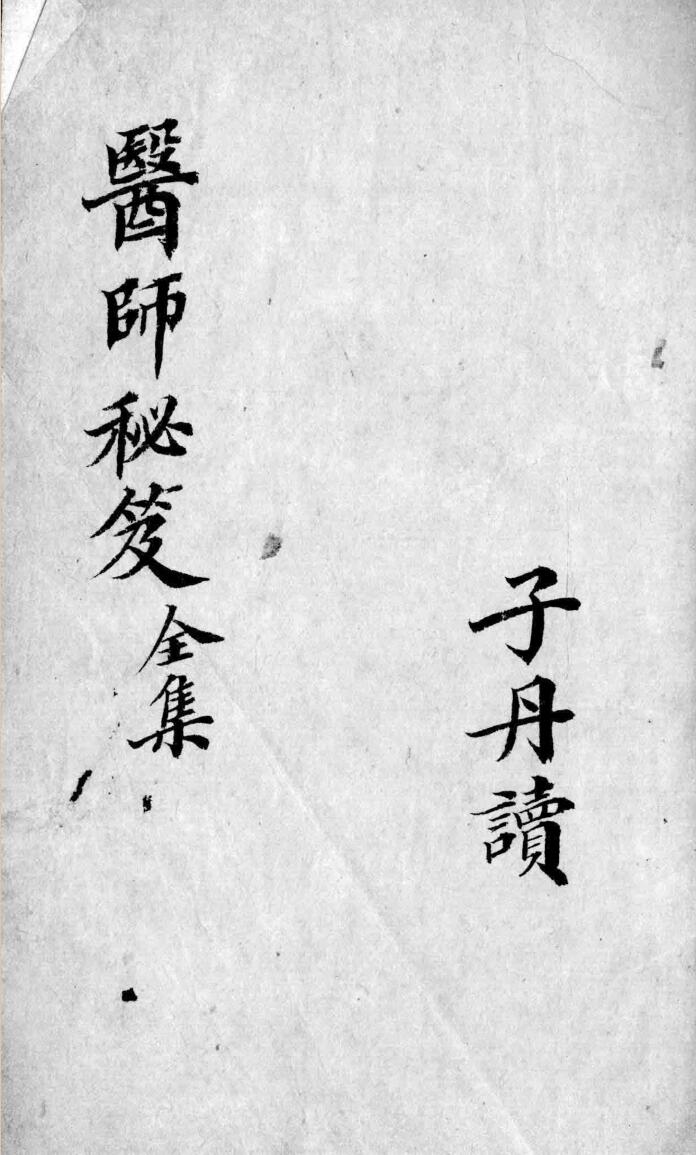 子丹讀
醫師秘笈全集